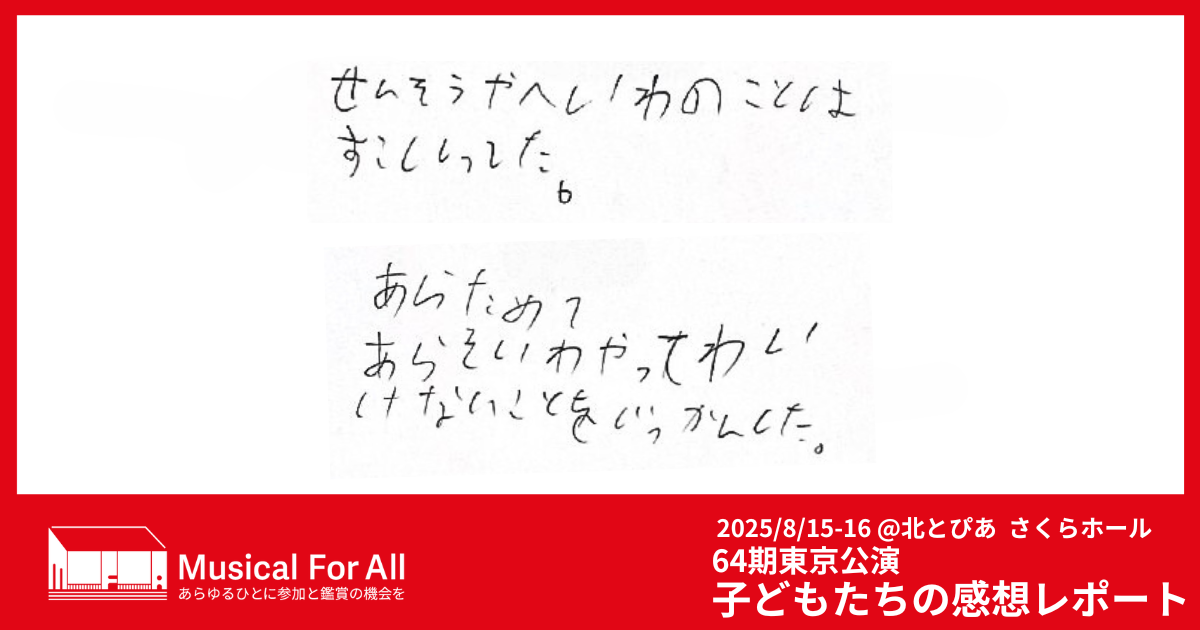 せんそうやへいわのことは
すこししってた。
あらためて
あらそいわやってわい
けないことをじっかんした。
Musical For All
あらゆるひとに参加と鑑賞の機会を
2025/8/15-16 @北とぴあ さくらホール
64期東京公演
子どもたちの感想レポート